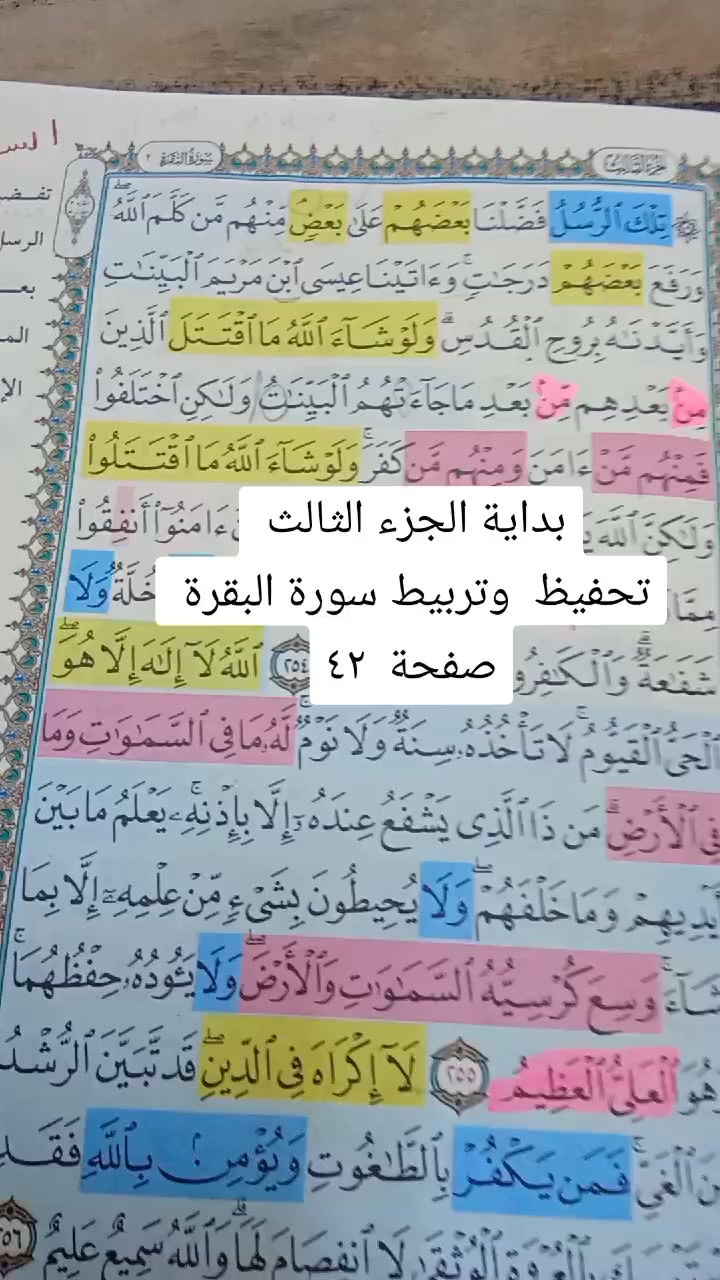 سورة البقرة ٢
الجزء الثالث
تِلْكَ ٱلرُّسُلُ فَضَّلْنَا بَعْضَهُمْ عَلَىٰ بَعْضٍ مِّنْهُم مَّن كَلَّمَ ٱللَّهُ
وَرَفَعَ بَعْضَهُمْ دَرَجَٰتٍ وَءَاتَيْنَا عِيسَى ٱبْنَ مَرْيَمَ ٱلْبَيِّنَٰتِ
وَأَيَّدْنَٰهُ بِرُوحِ ٱلْقُدُسِ وَلَوْ شَآءَ ٱللَّهُ مَا ٱقْتَتَلَ ٱلَّذِينَ
مِنۢ بَعْدِهِم مِّنۢ بَعْدِ مَا جَآءَتْهُمُ ٱلْبَيِّنَٰتُ وَلَٰكِنِ ٱخْتَلَفُوا۟
فَمِنْهُم مَّنْ ءَامَنَ وَمِنْهُم مَّن كَفَرَ وَلَوْ شَآءَ ٱللَّهُ مَا ٱقْتَتَلُوا۟
وَلَٰكِنَّ ٱللَّهَ ءَامَنُوٓا۟ أَنفِقُوا۟
بداية الجزء الثالث
خُلَّةٌ وَلَا
تحفيظ وتربيط سورة البقرة
شَفَٰعَةٌ ٢٥٤ ٱللَّهُ لَآ إِلَٰهَ إِلَّا هُوَ
صفحة ٤٢
ٱلْحَىُّ ٱلْقَيُّومُ لَا تَأْخُذُهُۥ سِنَةٌ وَلَا نَوْمٌ لَّهُۥ مَا فِى ٱلسَّمَٰوَٰتِ وَمَا
فِى ٱلْأَرْضِ مَن ذَا ٱلَّذِى يَشْفَعُ عِندَهُۥٓ إِلَّا بِإِذْنِهِۦ يَعْلَمُ مَا بَيْنَ
أَيْدِيهِمْ وَمَا خَلْفَهُمْ وَلَا يُحِيطُونَ بِشَىْءٍ مِّنْ عِلْمِهِۦٓ إِلَّا بِمَا
شَآءَ وَسِعَ كُرْسِيُّهُ ٱلسَّمَٰوَٰتِ وَٱلْأَرْضَ وَلَا يَـُٔودُهُۥ حِفْظُهُمَا
وَهُوَ ٱلْعَلِىُّ ٱلْعَظِيمُ ٢٥٥ لَآ إِكْرَاهَ فِى ٱلدِّينِ قَد تَّبَيَّنَ ٱلرُّشْدُ
مِنَ ٱلْغَىِّ فَمَن يَكْفُرْ بِٱلطَّٰغُوتِ وَيُؤْمِنۢ بِٱللَّهِ فَقَدِ
ٱلْوُثْقَىٰ لَا ٱنفِصَامَ لَهَا وَٱللَّهُ سَمِيعٌ عَلِيمٌ